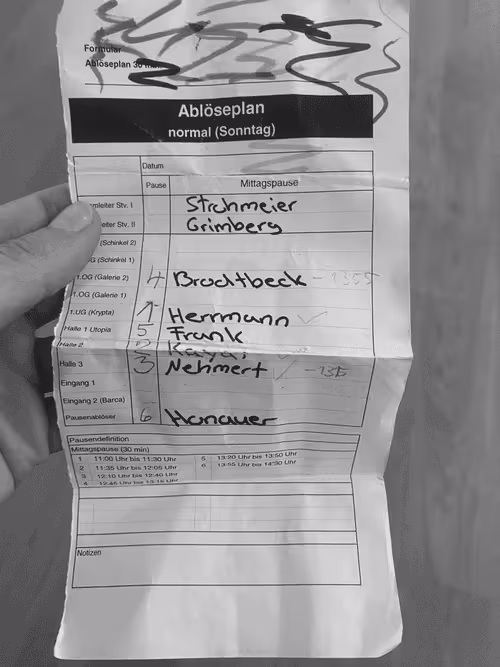 Formular
Ablöseplan 30
Ablöseplan
normal (Sonntag)
Datum
Pause Mittagspause
Stv. I Strohmeier
Stv. II Grimberg
(Schinkel 2)
(Schinkel 1)
1.OG (Galerie 2) 4 Brodtbeck
1.OG (Galerie 1)
1.UG (Krypta) 1 Herrmann ✓
Halle 1 Utopia 5 Frank
Halle 2 2
Halle 3 3 Nehmert ✓
Eingang 1
Eingang 2 (Barca)
Pausenablöser 6 Hanauer
Pausendefinition
Mittagspause (30 min)
1 11:00 Uhr bis 11:30 Uhr 5 13:20 Uhr bis 13:50 Uhr
2 11:35 Uhr bis 12:05 Uhr 6 13:55 Uhr bis 14:30 Uhr
3 12:10 Uhr bis 12:40 Uhr
4 12:45 Uhr bis 13:15 Uhr
Notizen